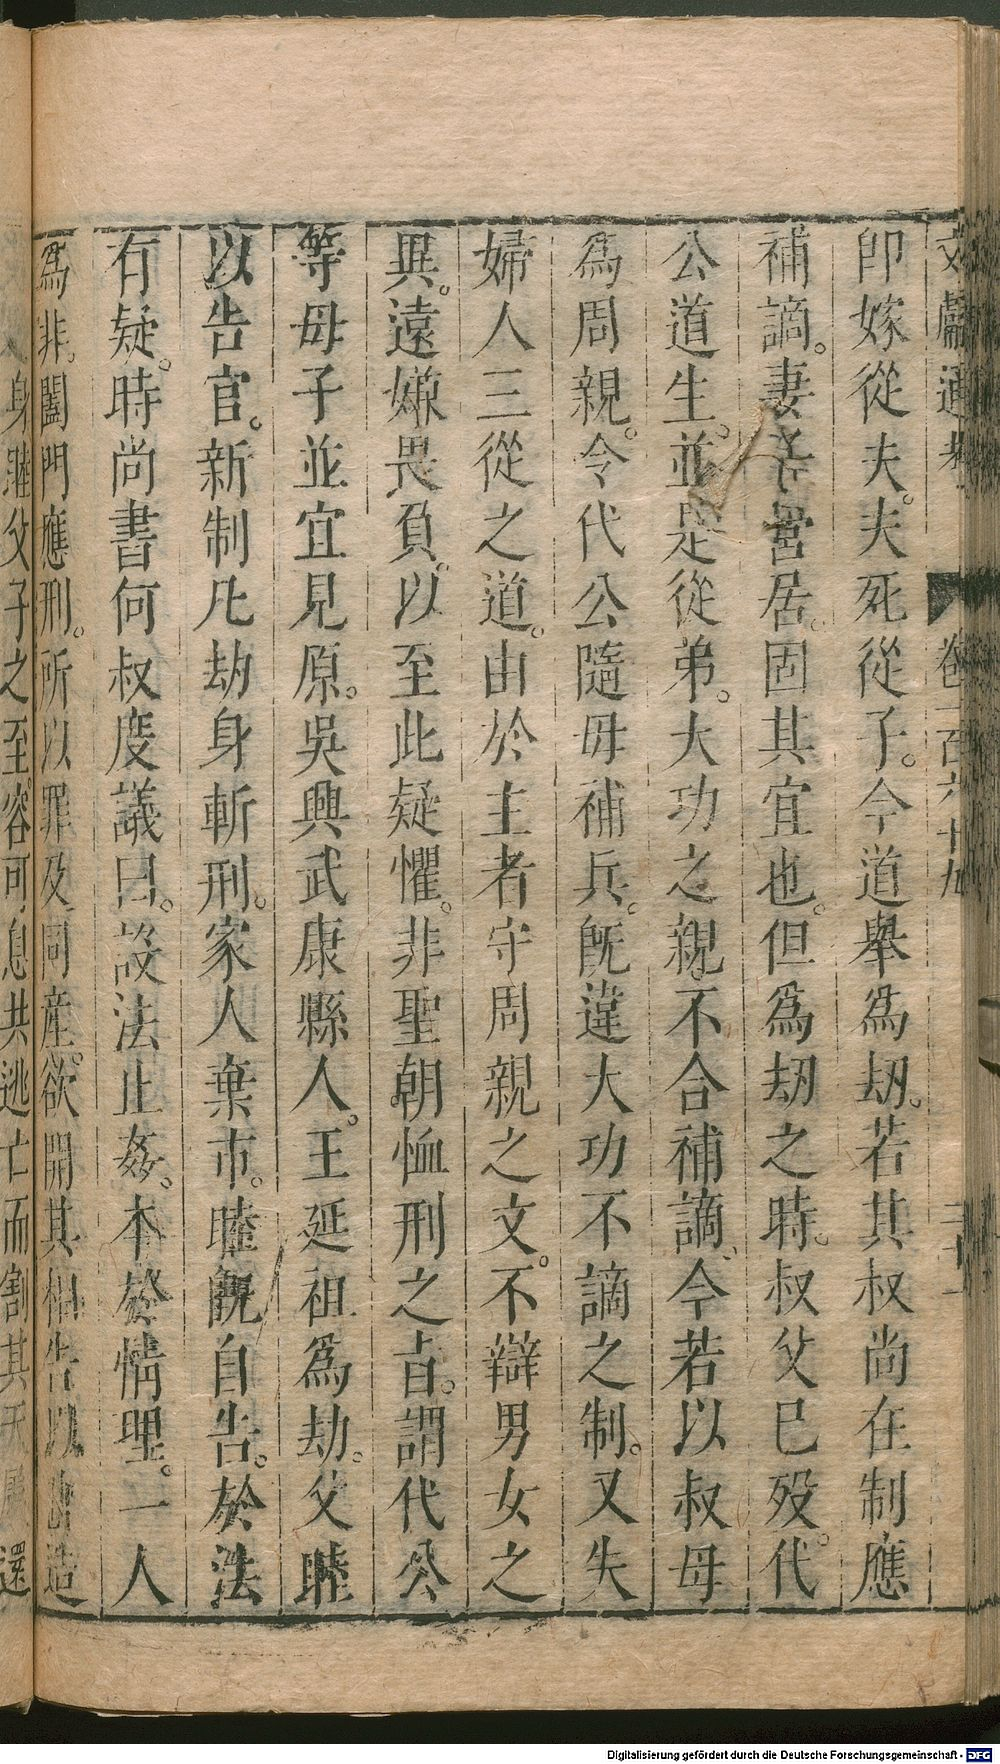 文獻通考 卷一百六十九
卽嫁從夫。夫死從子。今道舉爲劫。若其叔尚在制應
補謫。妻子營居。固其宜也。但爲劫之時。叔父已歿。代
公道生。並是從弟。大功之親。不合補謫。今若以叔母
爲周親。令代公隨母補兵。旣違大功不謫之制。又失
婦人三從之道。由於主者守周親之文。不辯男女之
異。遠嫌畏負。以至此疑懼。非聖朝恤刑之旨。謂代公
等母子並宜見原。吳興武康縣人。王延祖爲劫。父睦
以告官。新制凡劫身斬刑。家人棄市。睦旣自告。於法
有疑。時尚書何叔度議曰。設法止姦。本於情理。一人
爲非。闔門應刑。所以罪及同產。欲開其相告以出造
身睦父子之至。容可悉共逃亡而割其天屬還
Digitalisierung gefördert durch die Deutsche Forschungsgemeinschaft - DFG